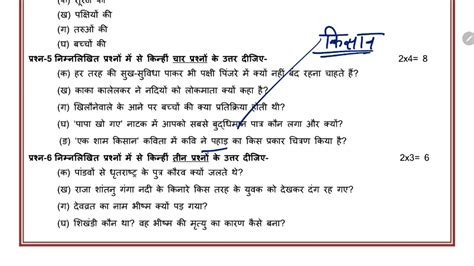 (ख) पक्षियों की
(ग) तरुओं की
(घ) बच्चों की
किसान
प्रश्न-5 निम्नलिखित प्रश्नों में से किन्हीं चार प्रश्नों के उत्तर दीजिए- 2x4= 8
(क) हर तरह की सुख-सुविधा पाकर भी पक्षी पिंजरे में क्यों नहीं बंद रहना चाहते हैं?
(ख) काका कालेलकर ने नदियों को लोकमाता क्यों कहा है?
(ग) खिलौनेवाले के आने पर बच्चों की क्या प्रतिक्रिया होती थी?
(घ) 'पापा खो गए' नाटक में आपको सबसे बुद्धिमान पात्र कौन लगा और क्यों?
(ङ) 'एक शाम किसान' कविता में कवि ने पहाड़ का किस प्रकार चित्रण किया है?
प्रश्न-6 निम्नलिखित प्रश्नों में से किन्हीं तीन प्रश्नों के उत्तर दीजिए- 2x3= 6
(क) पांडवों से धृतराष्ट्र के पुत्र कौरव क्यों जलते थे?
(ख) राजा शांतनु गंगा नदी के किनारे किस तरह के युवक को देखकर दंग रह गए?
(ग) देवव्रत का नाम भीष्म क्यों पड़ गया?
(घ) शिखंडी कौन था? वह भीष्म की मृत्यु का कारण कैसे बना?